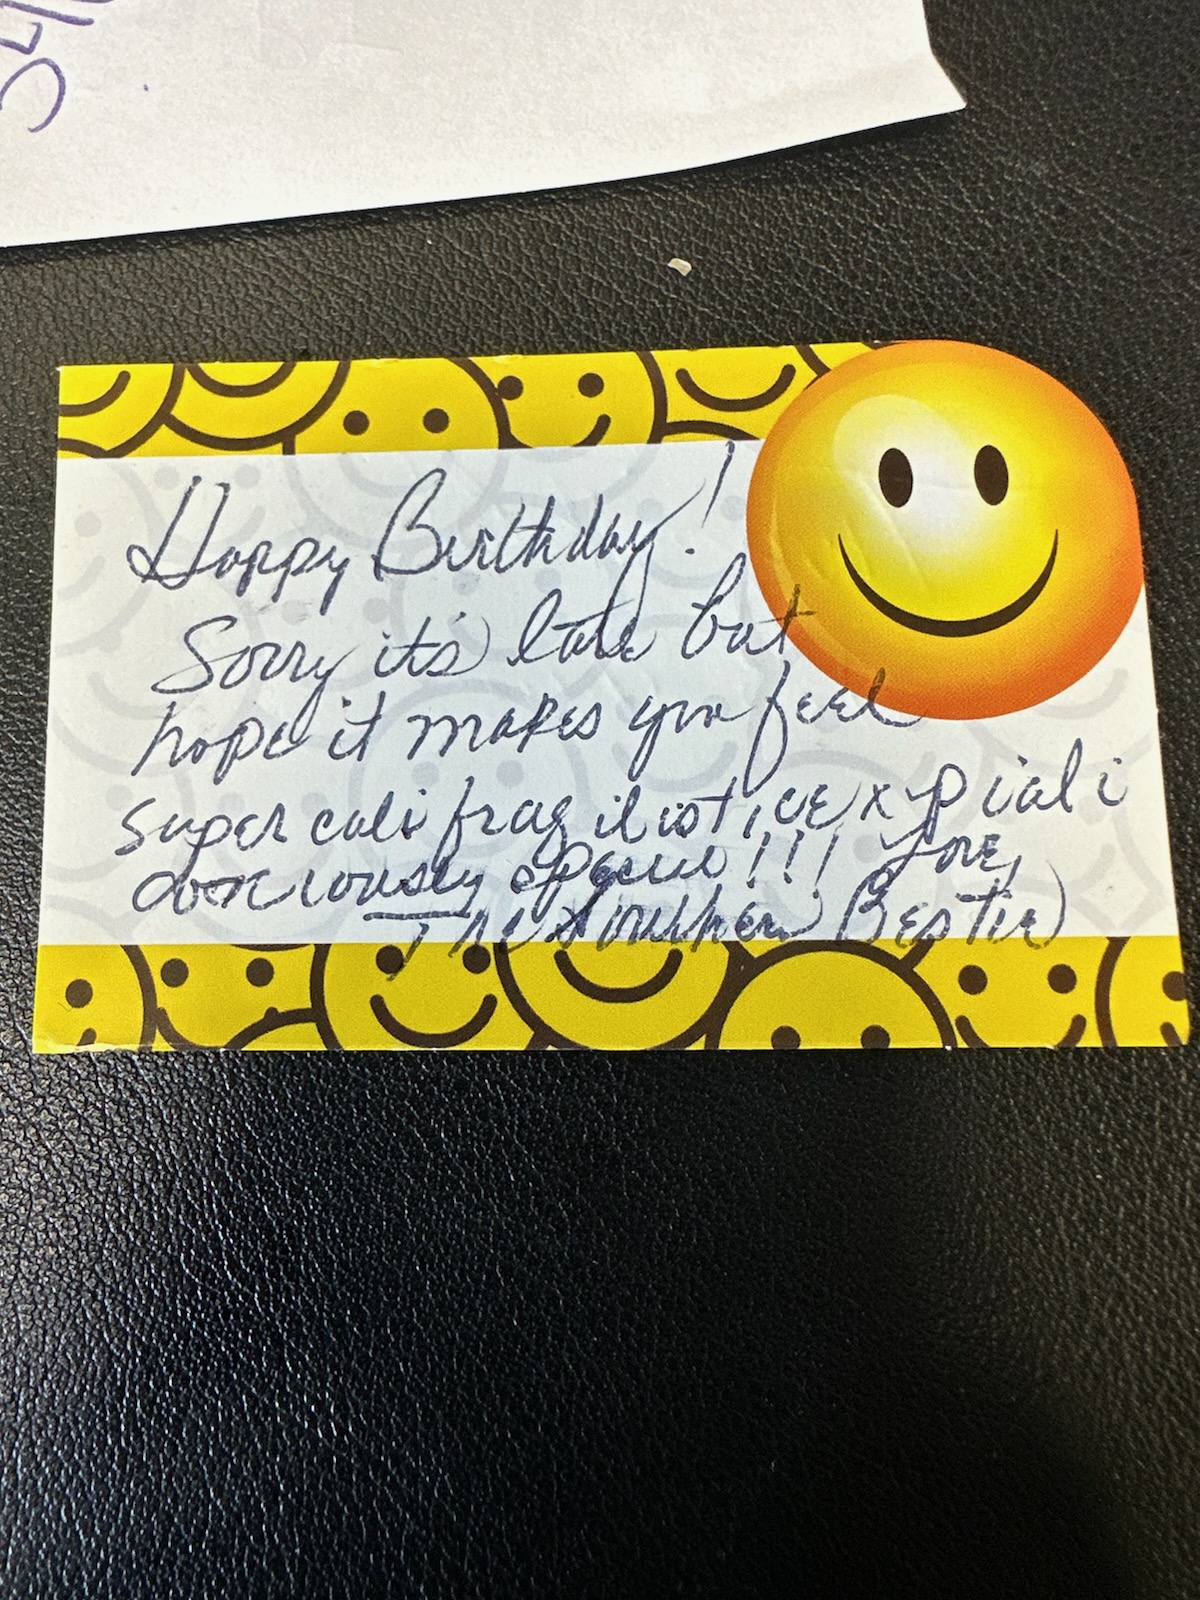 Happy Birthday!
Sorry it's late but
hope it makes you feel
super cali frag il ist ice x p iali
dociously special!!! Love,
The Southern Bestie